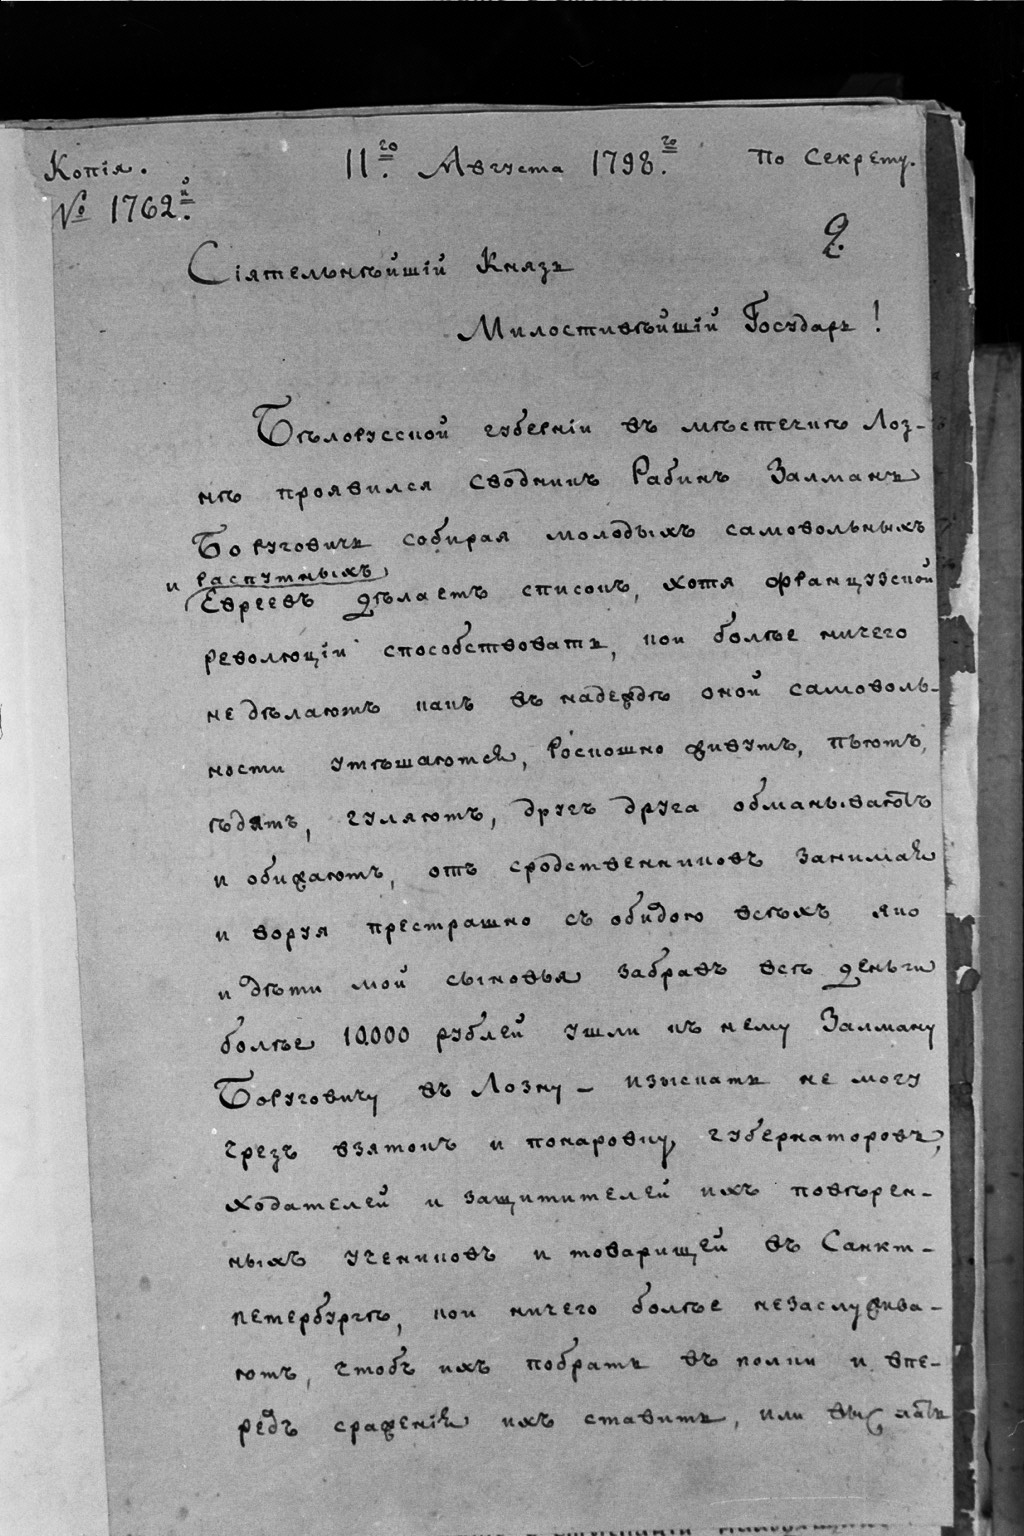 Копія. 11.го Августа 1798.го По секрету.
№ 1762.й
2.
Сіятельнѣйшій Князь
Милостивѣйшій Государь!
Бѣлорусской губерніи въ мѣстечкѣ Лоз-
нѣ проявился сводникъ Рабинъ Залманъ
Боруговичь собирая молодыхъ самовольныхъ
и распутныхъ
Евреевъ дѣлаетъ списокъ, хотя французской
революціи способствовать, кои болѣе ничего
не дѣлаютъ какъ въ надеждѣ оной самоволь-
ности утѣшаются, роскошно живутъ, пьютъ,
ѣдятъ, гуляютъ, другъ друга обманываютъ
и обижаютъ, отъ сродственниковъ занимая
и воруя престрашно съ обидою всѣхъ яко
и дѣти мои сыновья забравъ всѣ деньги
болѣе 10.000 рублей ушли къ нему Залману
Боруговичу въ Лозну – изыскать не могу
чрезъ взятокъ и понаровку губернаторовъ,
ходателей и защитителей ихъ повѣрен-
ныхъ учениковъ и товарищей въ Санкт-
петербургѣ, кои ничего болѣе незаслужива-
ютъ, чтобъ ихъ побрать въ полки и впе-
редъ сраженія ихъ ставить, или